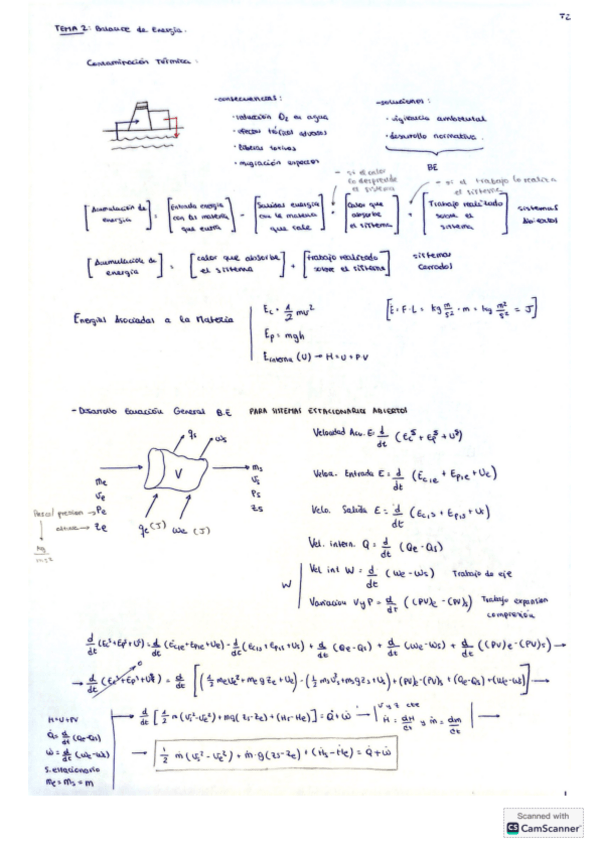 T2
TEMA 2: Balance de Energía.
Contaminación Térmica:
-consecuencias:
·reducción O₂ en agua
·efectos tóxicos adversos
·migración especies
-soluciones:
·vigilancia ambiental
·desarrollo normativa.
BE
- si el calor lo desprende el sistema
- si el trabajo lo realiza el sistema
[Acumulación de energía] = [Entrada energía con la materia que entra] - [Salidas energía con la materia que sale] + [Calor que absorbe el sistema] + [Trabajo realizado sobre el sistema] sistemas abiertos
[Acumulación de energía] = [calor que absorbe el sistema] + [trabajo realizado sobre el sistema] sistemas cerrados
Energías Asociadas a la Materia
Ec = 1/2 mv²
[E = F·L = kg m/s² · m = kg m²/s² = J]
Ep = mgh
Einterna (U) → H = U + PV
- Desarrollo Ecuación General B.E PARA SISTEMAS ESTACIONARIOS ABIERTOS
qs ws
V
me ve Pe ze
ms vs Ps zs
qe (J) we (J)
kg/m·s²
Velocidad Acu. E = d/dt (Ec^s + Ep^s + U^s)
Veloc. Entrada E = d/dt (Ec,e + Ep,e + Ue)
Velo. Salida E = d/dt (Ec,s + Ep,s + Us)
Vel. interc. Q = d/dt (Qe - Qs)
W
Vel int W = d/dt (We - Ws) Trabajo de eje
Variacion V y P = d/dt ((PV)e - (PV)s) Trabajo expansion compresión
d/dt (Ec^s + Ep^s + U^s) = d/dt (Ec,e + Ep,e + Ue) - d/dt (Ec,s + Ep,s + Us) + d/dt (Qe - Qs) + d/dt (We - Ws) + d/dt ((PV)e - (PV)s) →
→ d/dt (Ec^s + Ep^s + U^s) 0 = d/dt [(1/2 me ve² + me g ze + Ue) - (1/2 ms vs² + ms g zs + Us) + (PV)e - (PV)s + (Qe - Qs) + (We - Ws)] →
H = U + PV
Q̇ = d/dt (Qe - Qs)
Ẇ = d/dt (We - Ws)
S. estacionario
me = ms = m
→ d/dt [1/2 m (vs² - ve²) + mg (zs - ze) + (Hs - He)] = Q̇ + Ẇ → | v y z cte Ḣ = dH/dt y ṁ = dm/dt | →
→ 1/2 ṁ (vs² - ve²) + ṁ·g (zs - ze) + (Ḣs - Ḣe) = Q̇ + Ẇ
1
Scanned with
CS CamScanner